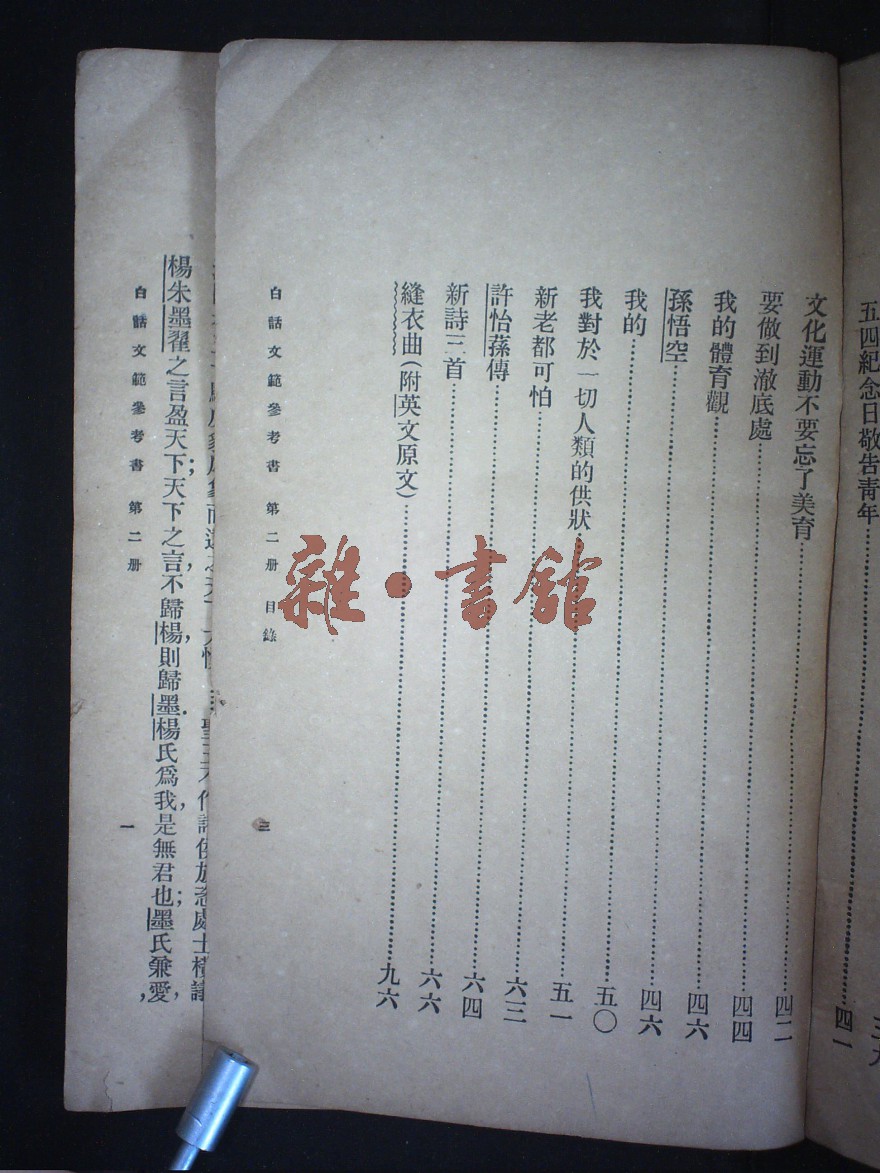 五四紀念日敬告青年……四一
文化運動不要忘了美育……四二
要做到澈底處……四四
我的體育觀……四六
孫悟空……四六
我的……五〇
我對於一切人類的供狀……五一
新老都可怕……六三
許怡蓀傳……六四
新詩三首……六六
縫衣曲(附英文原文)……九六
白話文範參考書 第二册 目錄 三
處士橫議
楊朱墨翟之言盈天下;天下之言不歸楊,則歸墨.楊氏爲我,是無君也;墨氏兼愛,
白話文範參考書 第二册 一
雜·書館